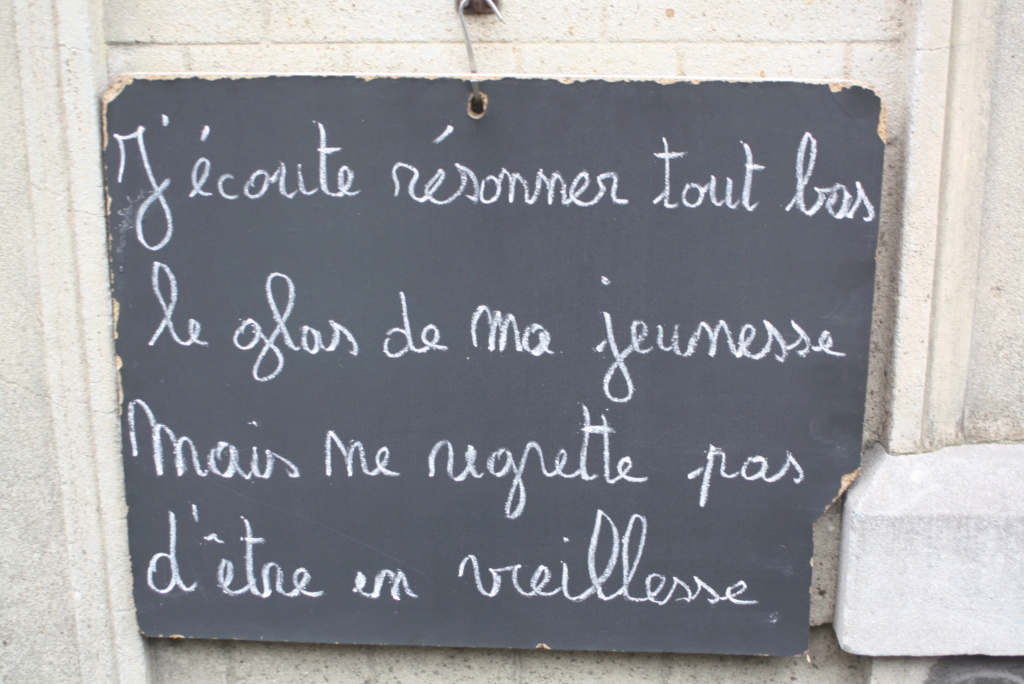 J'écoute résonner tout bas
le glas de ma jeunesse
Mais ne regrette pas
d'être en vieillesse